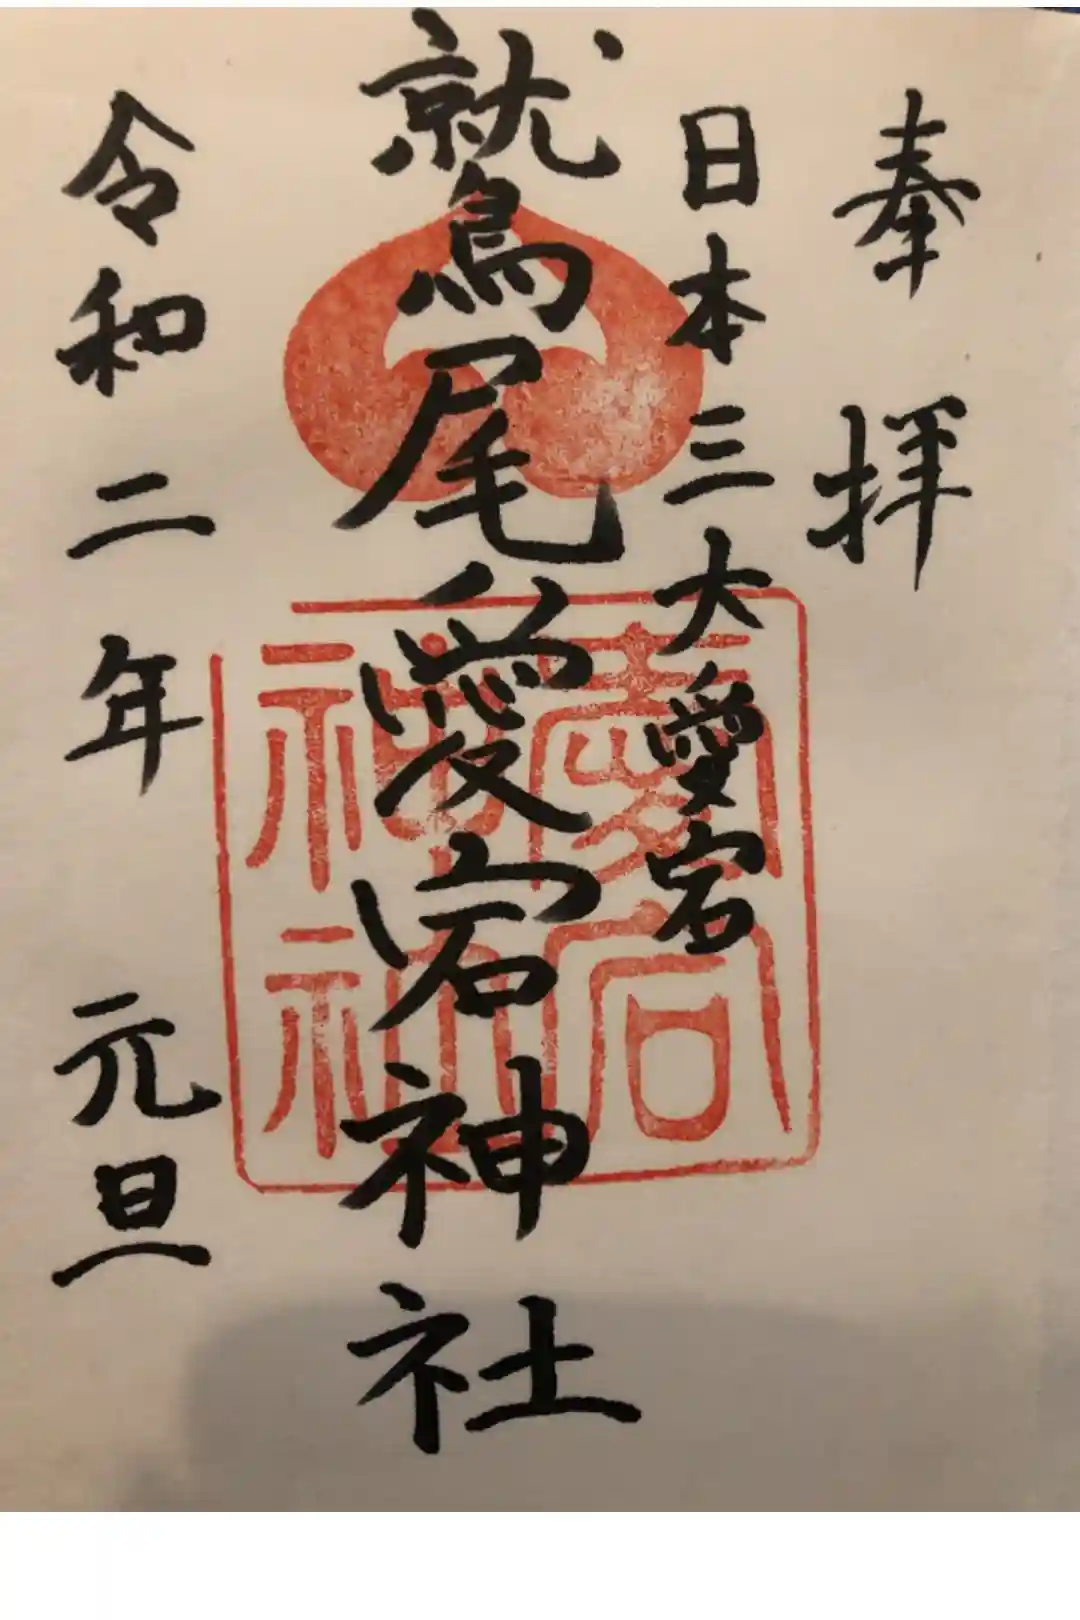 奉拝
日本三大愛宕
鷲尾愛宕神社
令和二年 元旦
愛宕
神社